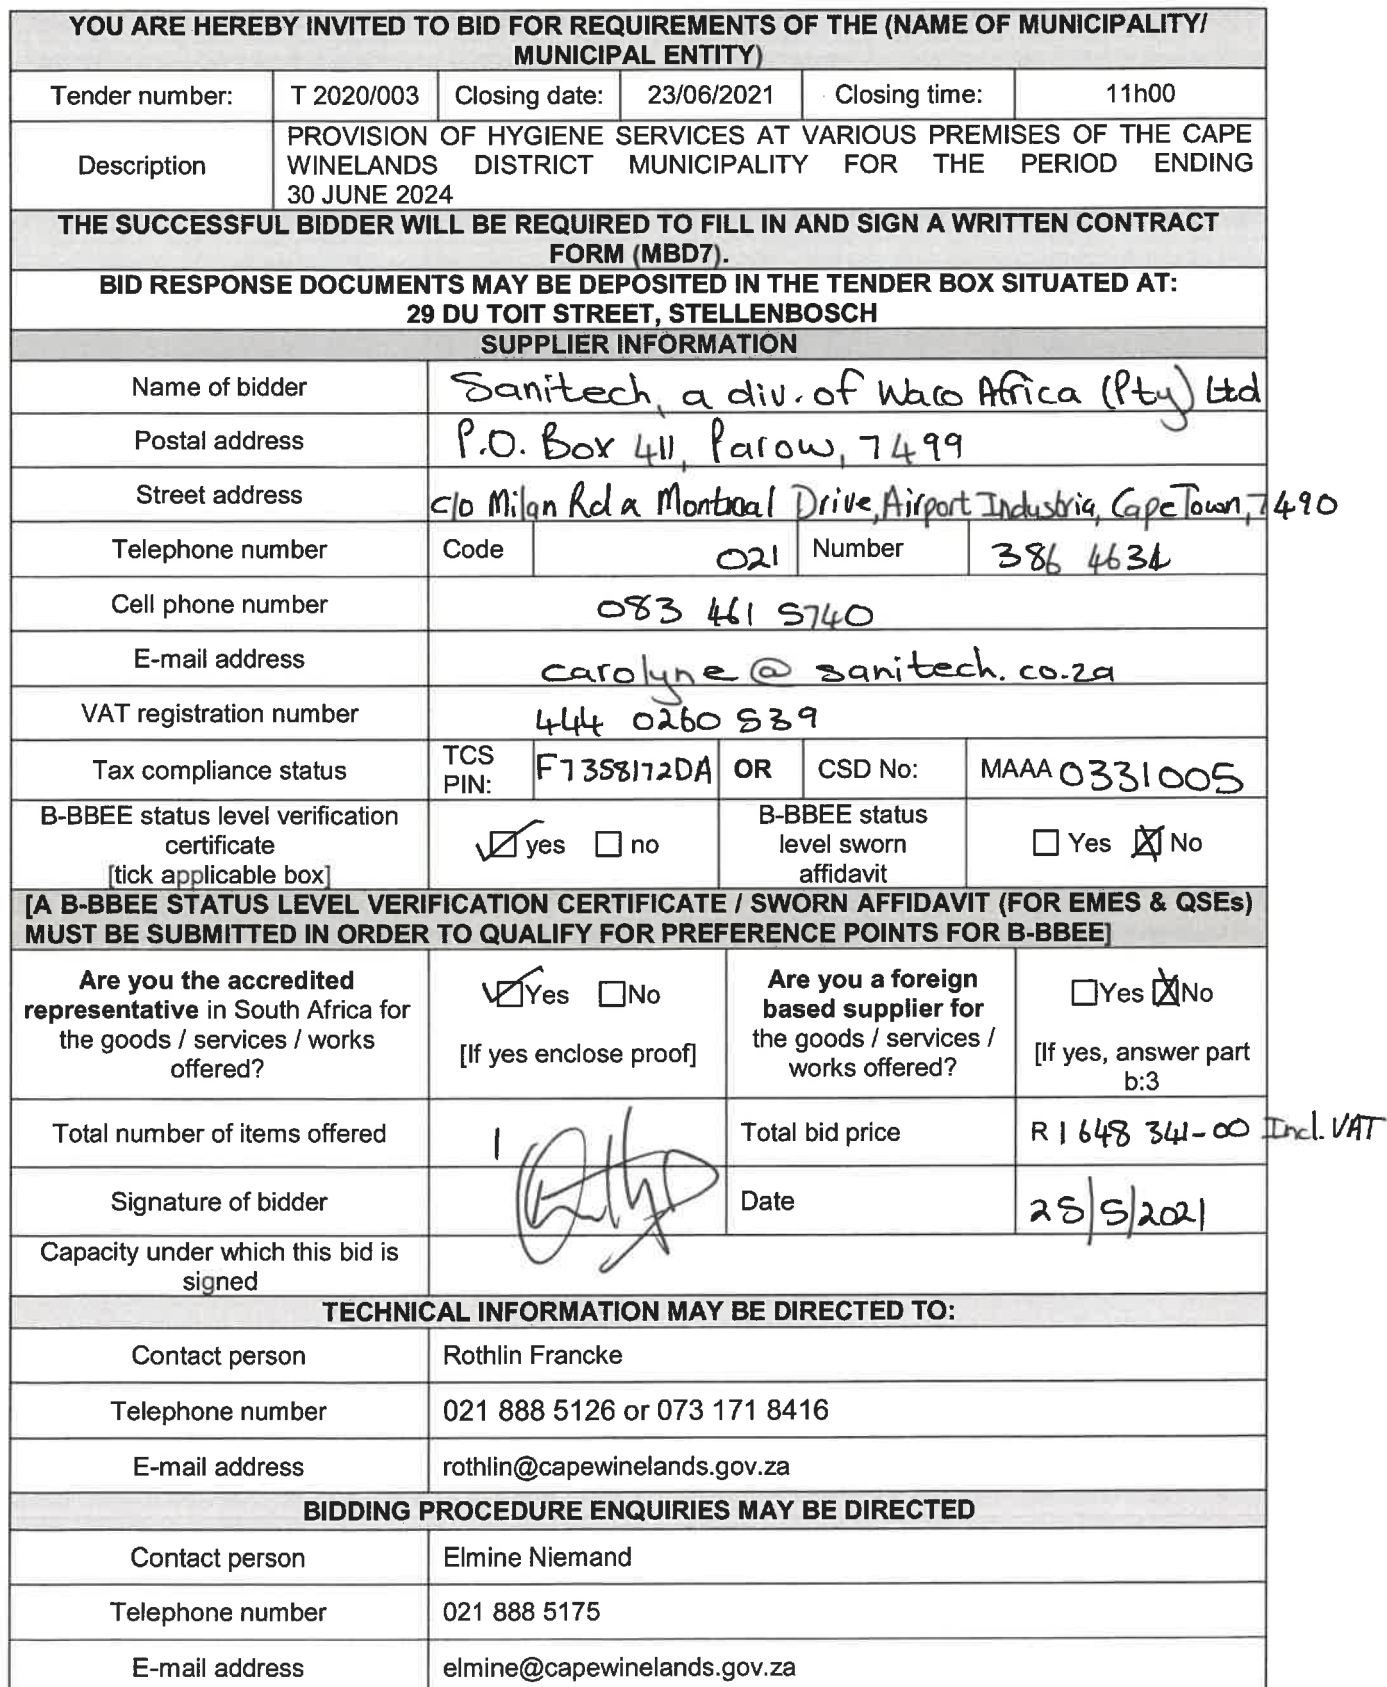 YOU ARE HEREBY INVITED TO BID FOR REQUIREMENTS OF THE (NAME OF MUNICIPALITY/
MUNICIPAL ENTITY)
Tender number: T 2020/003 Closing date: 23/06/2021 Closing time: 11h00
Description
PROVISION OF HYGIENE SERVICES AT VARIOUS PREMISES OF THE CAPE
WINELANDS DISTRICT MUNICIPALITY FOR THE PERIOD ENDING
30 JUNE 2024
THE SUCCESSFUL BIDDER WILL BE REQUIRED TO FILL IN AND SIGN A WRITTEN CONTRACT
FORM (MBD7).
BID RESPONSE DOCUMENTS MAY BE DEPOSITED IN THE TENDER BOX SITUATED AT:
29 DU TOIT STREET, STELLENBOSCH
SUPPLIER INFORMATION
Name of bidder Sanitech, a div. of Waco Africa (Pty) Ltd
Postal address P.O. Box 411, Parow, 7499
Street address c/o Milan Rd & Montreal Drive, Airport Industria, Cape Town, 7490
Telephone number Code 021 Number 386 4634
Cell phone number 083 461 5740
E-mail address carolyne@sanitech.co.za
VAT registration number 444 0260 539
Tax compliance status TCS PIN: F7358172DA OR CSD No: MAAA 0331005
B-BBEE status level verification
certificate
[tick applicable box]
yes no
B-BBEE status
level sworn
affidavit
Yes No
[A B-BBEE STATUS LEVEL VERIFICATION CERTIFICATE / SWORN AFFIDAVIT (FOR EMES & QSEs)
MUST BE SUBMITTED IN ORDER TO QUALIFY FOR PREFERENCE POINTS FOR B-BBEE]
Are you the accredited
representative in South Africa for
the goods / services / works
offered?
Yes No
[If yes enclose proof]
Are you a foreign
based supplier for
the goods / services /
works offered?
Yes No
[If yes, answer part
b:3
Total number of items offered 1 Total bid price R 1 648 341-00 Incl. VAT
Signature of bidder Date 25/5/2021
Capacity under which this bid is
signed
TECHNICAL INFORMATION MAY BE DIRECTED TO:
Contact person Rothlin Francke
Telephone number 021 888 5126 or 073 171 8416
E-mail address rothlin@capewinelands.gov.za
BIDDING PROCEDURE ENQUIRIES MAY BE DIRECTED
Contact person Elmine Niemand
Telephone number 021 888 5175
E-mail address elmine@capewinelands.gov.za